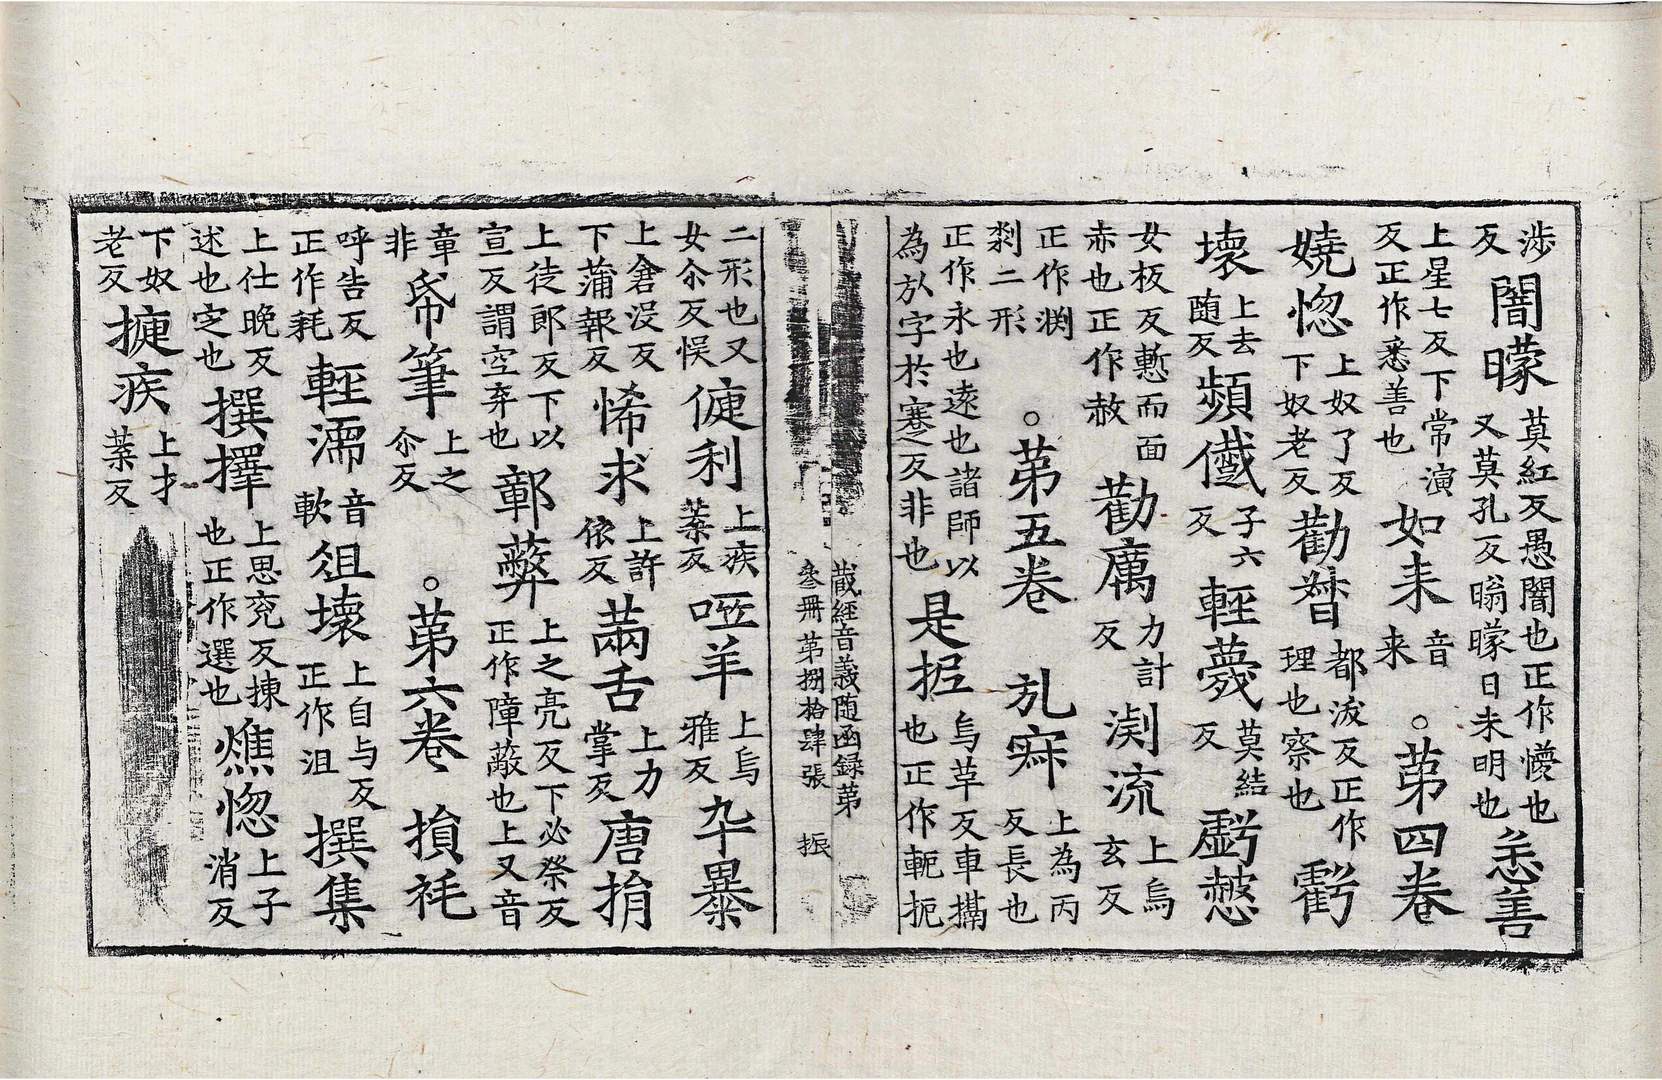 涉反闇曚莫紅反愚闇也正作懞也又莫孔反曚曚日未明也恙善
上星七反下常演反正作悉善也如来音来。苐四卷
嬈惚上奴了反下奴老反勸督都沷反正作理也察也虧
壞上去随反頻㒝子六反輕薎莫結反虧㦬
女板反慙而面赤也正作赦勸厲力計反渕流上烏玄反
正作渕剃二形。苐五卷 㐲寐上為丙反長也
正作永也遠也諸師以為㐲字於蹇反非也是捤烏革反車搹也正作軛扼
藏經音義随函録苐叄册苐捌拾肆張 振
二形也又女尒反悮倢利上疾葉反啞羊上烏雅反卒暴
上倉沒反下蒲報反悕求上許依反䓣舌上力掌反唐捐
上徒郎反下以宣反謂空弃也鄣蔽上之亮反下必祭反正作障蔽也上又音
章非帋筆上之尒反。苐六卷 損秏
呼告反正作耗輕濡音軟俎壞上自与反正作沮撰集
上仕晚反述也定也撰擇上思兖反揀也正作選也憔惚上子消反
下奴老反捷疾上才葉反